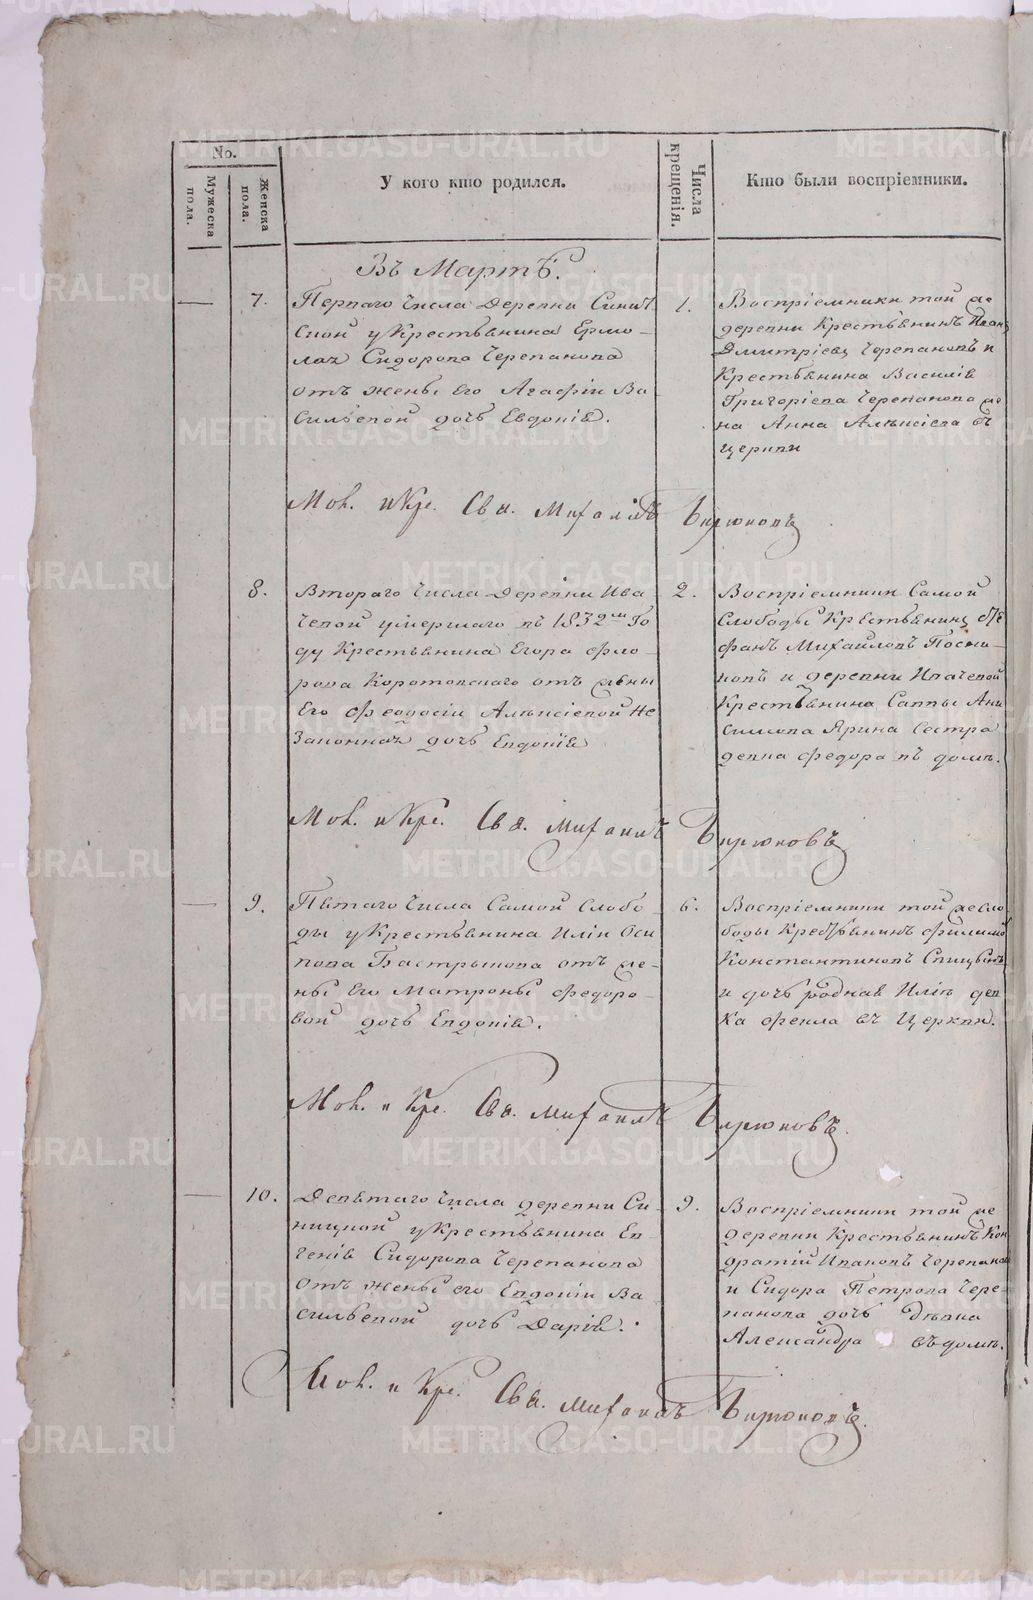 No.
Мужеска пола.
Женска пола.
У кого кто родился.
Числа крещенія.
Кто были воспріемники.
Въ Мартѣ.
7.
Перваго числа Деревни Синиц
кой у Крестьянина Ермо-
лая Сидорова Черепанова
отъ жены Его Агафіи Ва
сильевой дочь Евдокія.
1.
Воспріемники той же
деревни Крестьянинъ Иван
Дмитріевъ Черепановъ и
Крестьянина Василія
Григоріева Черепанова же
на Анна Алексіева въ
церкви
Мол. и Кре. Свя. Михаилъ Бирюковъ
8.
Втораго числа Деревни Ива
чевой умершаго въ 1832мъ Го
ду Крестьянина Егора Фло-
рова Коротовскаго отъ жены
Его Феодосіи Алексіевой Не
Законная дочь Евдокія
2.
Воспріемники Самой
Слободы Крестьянинъ Сте
фанъ Михайловъ Посни-
ковъ и деревни Ивачевой
Крестьянина Саввы Ани
симова Ярина Сестра
девка Федора въ доме.
Мол. и Кре. Свя. Михаилъ Бирюковъ
9.
Пятаго числа Самой Слобо-
ды у Крестьянина Иліи Оси
пова Бастрыкова отъ же-
ны Его Матроны Федоро-
вой дочь Евдокія.
6.
Воспріемники той же Сло
боды Крестьянинъ Филимо
Константиновъ Спицынъ
и дочь родная Иліи дев
ка Фекла въ Церкви.
Мол. и Кре. Свя. Михаилъ Бирюковъ.
10.
Девятаго числа деревни Си-
ницкой у Крестьянина Ев-
генія Сидорова Черепанова
отъ жены его Евдокіи Ва
сильевой дочь Дарія.
9.
Воспріемники той же
деревни Крестьянинъ Кон
дратій Ивановъ Черепанов
и Сидора Петрова Чере-
панова дочь Девка
Александра въ доме.
Мол. и Кре. Свя. Михаилъ Бирюковъ.
METRIKI.GASO-URAL.RU